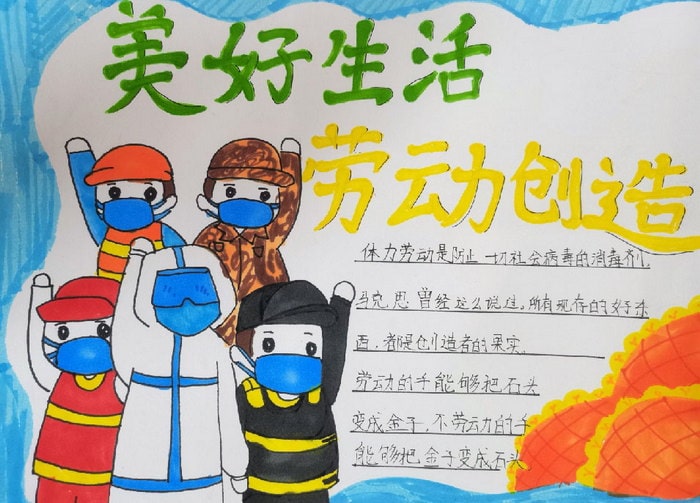 美好生活
劳动创造
体力劳动是防止一切社会病毒的消毒剂.
马克思曾经这么说过,所有现存的好东
西,都是创造者的果实.
劳动的手能够把石头
变成金子,不劳动的手
能够把金子变成石头